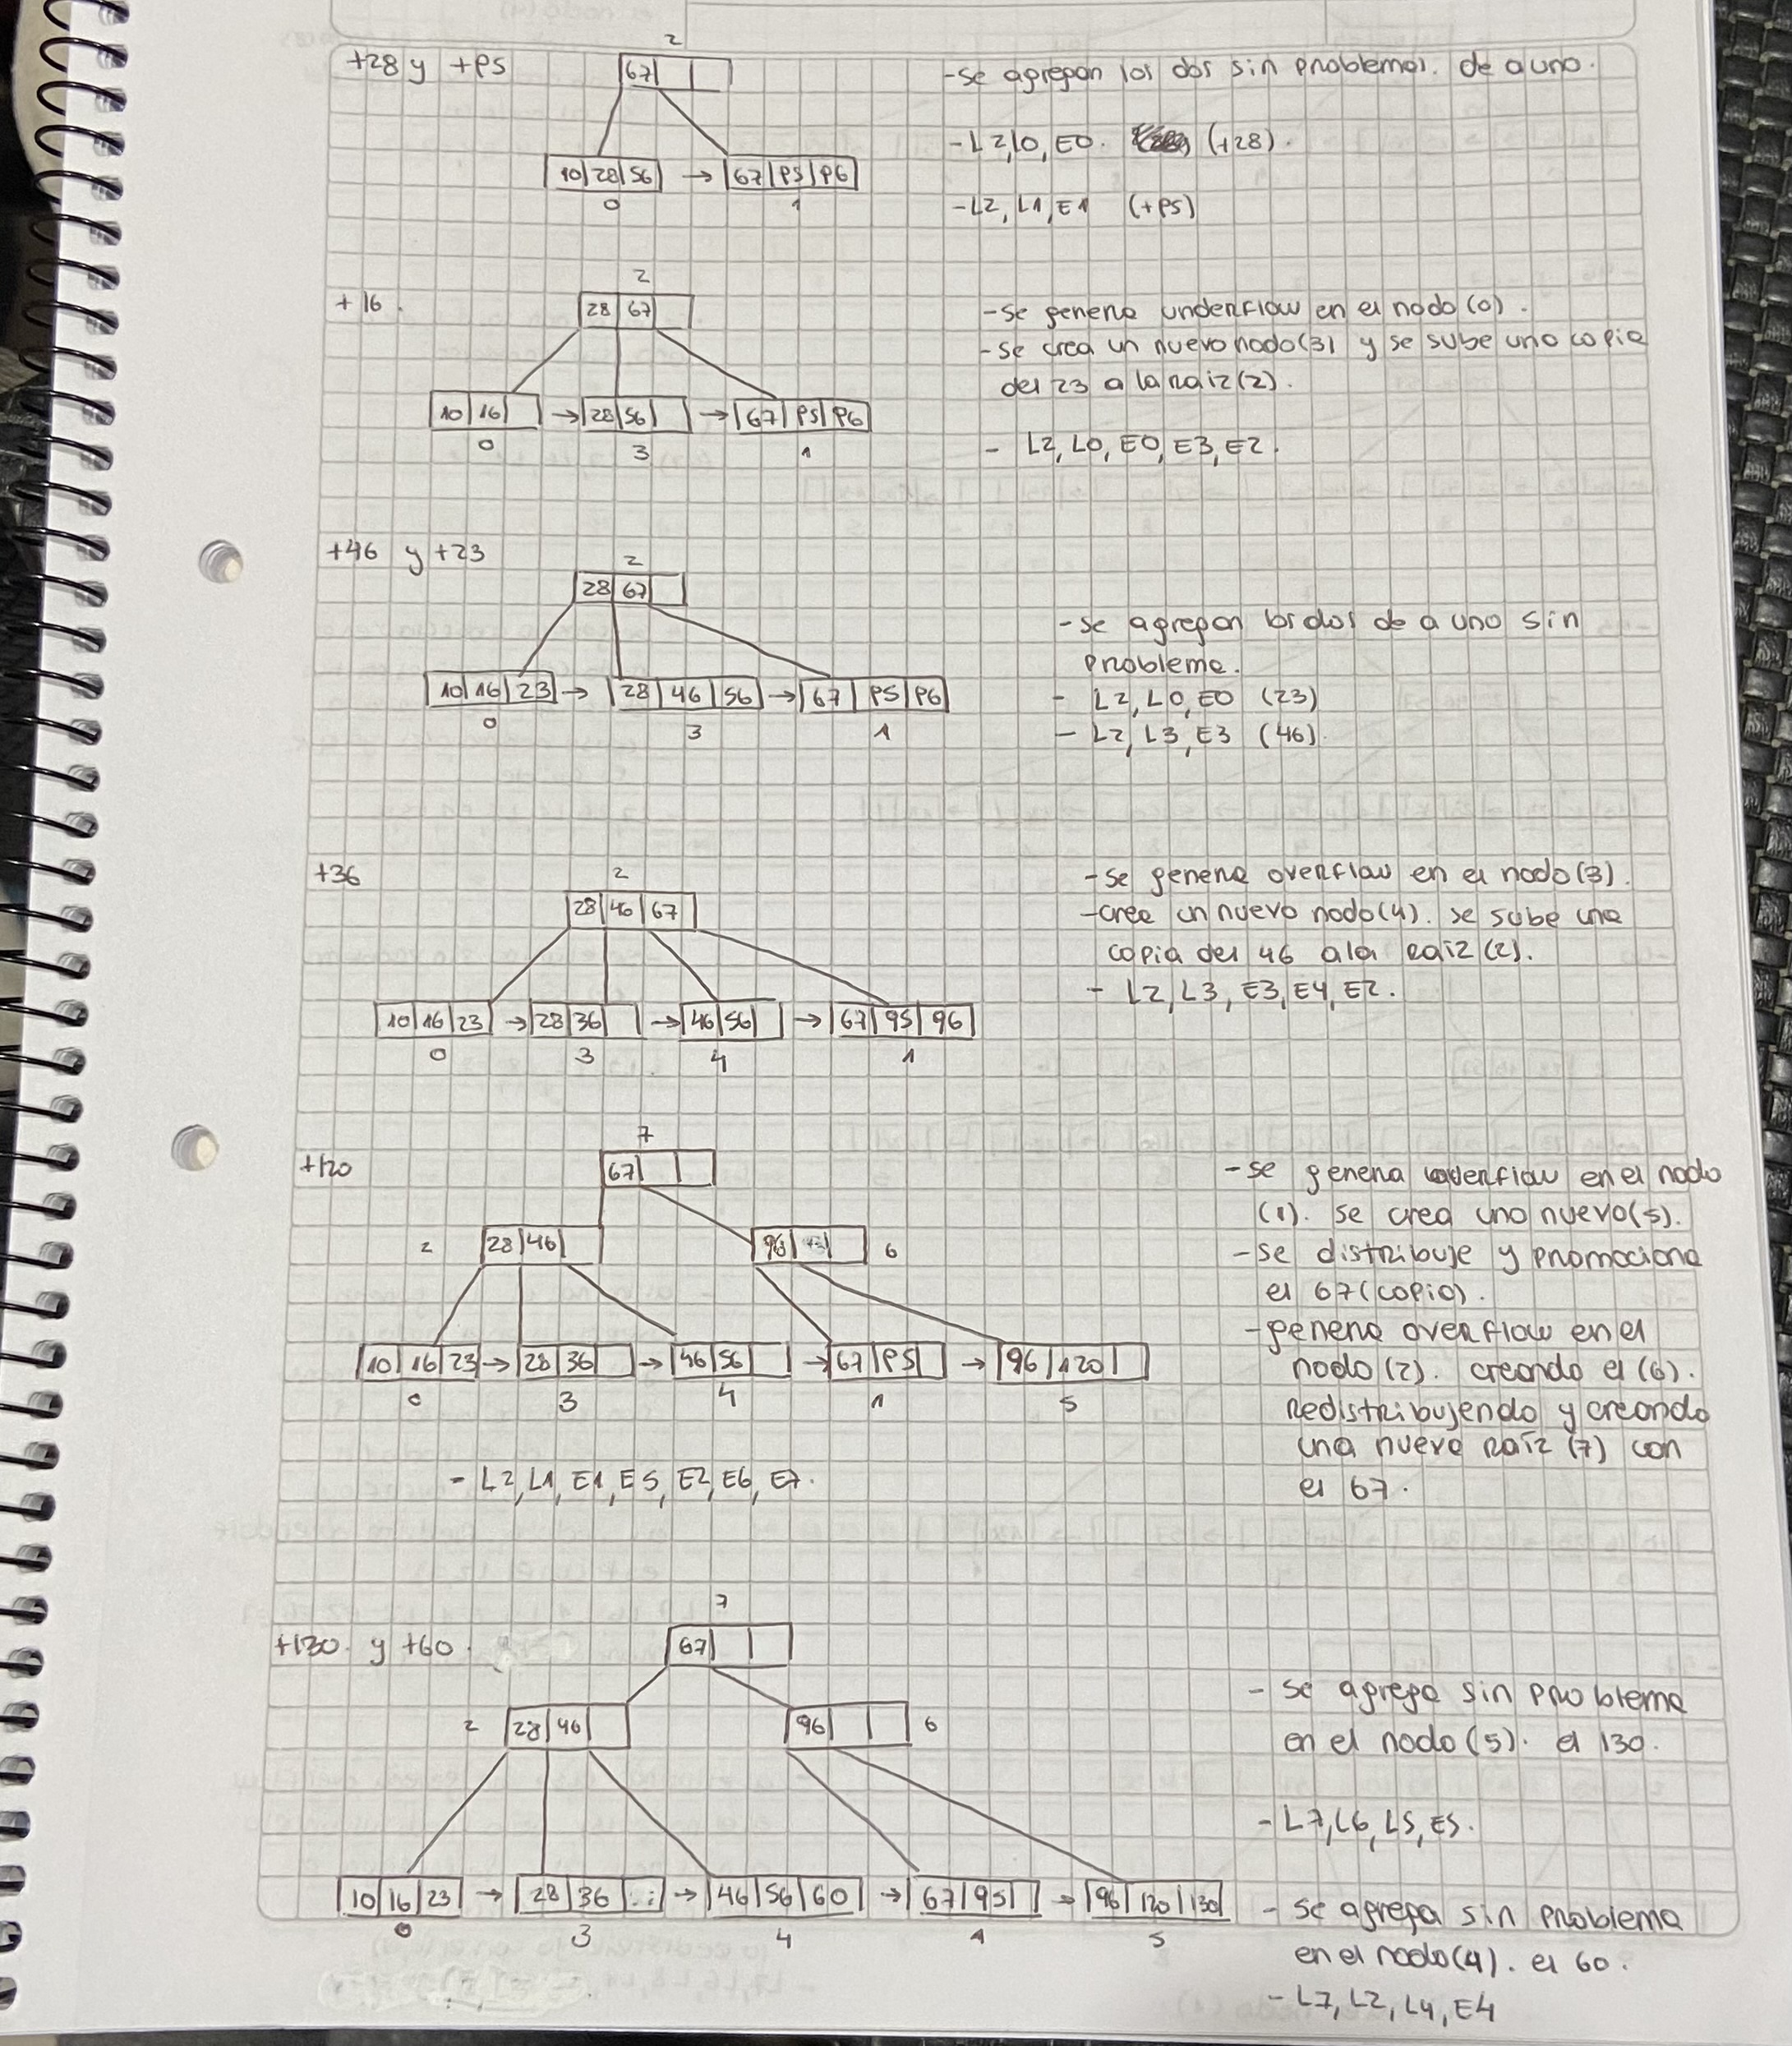 +28 y +95
2
67
10 28 56 → 67 95 96
0 1
- se agregan los dos sin problemas. de a uno.
- L2, L0, E0. (+28).
- L2, L1, E1 (+95)
+16.
2
28 67
10 16 → 28 56 → 67 95 96
0 3 1
- se genera underflow en el nodo (0).
- se crea un nuevo nodo (3) y se sube una copia
del 23 a la raiz (2).
- L2, L0, E0, E3, E2.
+46 y +23
2
28 67
10 16 23 → 28 46 56 → 67 95 96
0 3 1
- se agregan los dos de a uno sin
problema.
- L2, L0, E0 (23)
- L2, L3, E3 (46)
+36
2
28 46 67
10 16 23 → 28 36 → 46 56 → 67 95 96
0 3 4 1
- se genera overflow en el nodo (3).
- cree un nuevo nodo (4). se sube una
copia del 46 a la raiz (2).
- L2, L3, E3, E4, E2.
+120
7
67
2 28 46 96 6
10 16 23 → 28 36 → 46 56 → 67 95 → 96 120
0 3 4 1 5
- L2, L1, E1, E5, E2, E6, E7.
- se genera overflow en el nodo
(1). se crea uno nuevo (5).
- se distribuje y promociona
el 67 (copia).
- genera overflow en el
nodo (2). creando el (6).
Redistribujendo y creando
una nueva raíz (7) con
el 67.
+130 y +60.
7
67
2 28 46 96 6
10 16 23 → 28 36 → 46 56 60 → 67 95 → 96 120 130
0 3 4 1 5
- se agrega sin problema
en el nodo (5). el 130.
- L7, L6, L5, E5.
- se agrega sin problema
en el nodo (4). el 60.
- L7, L2, L4, E4